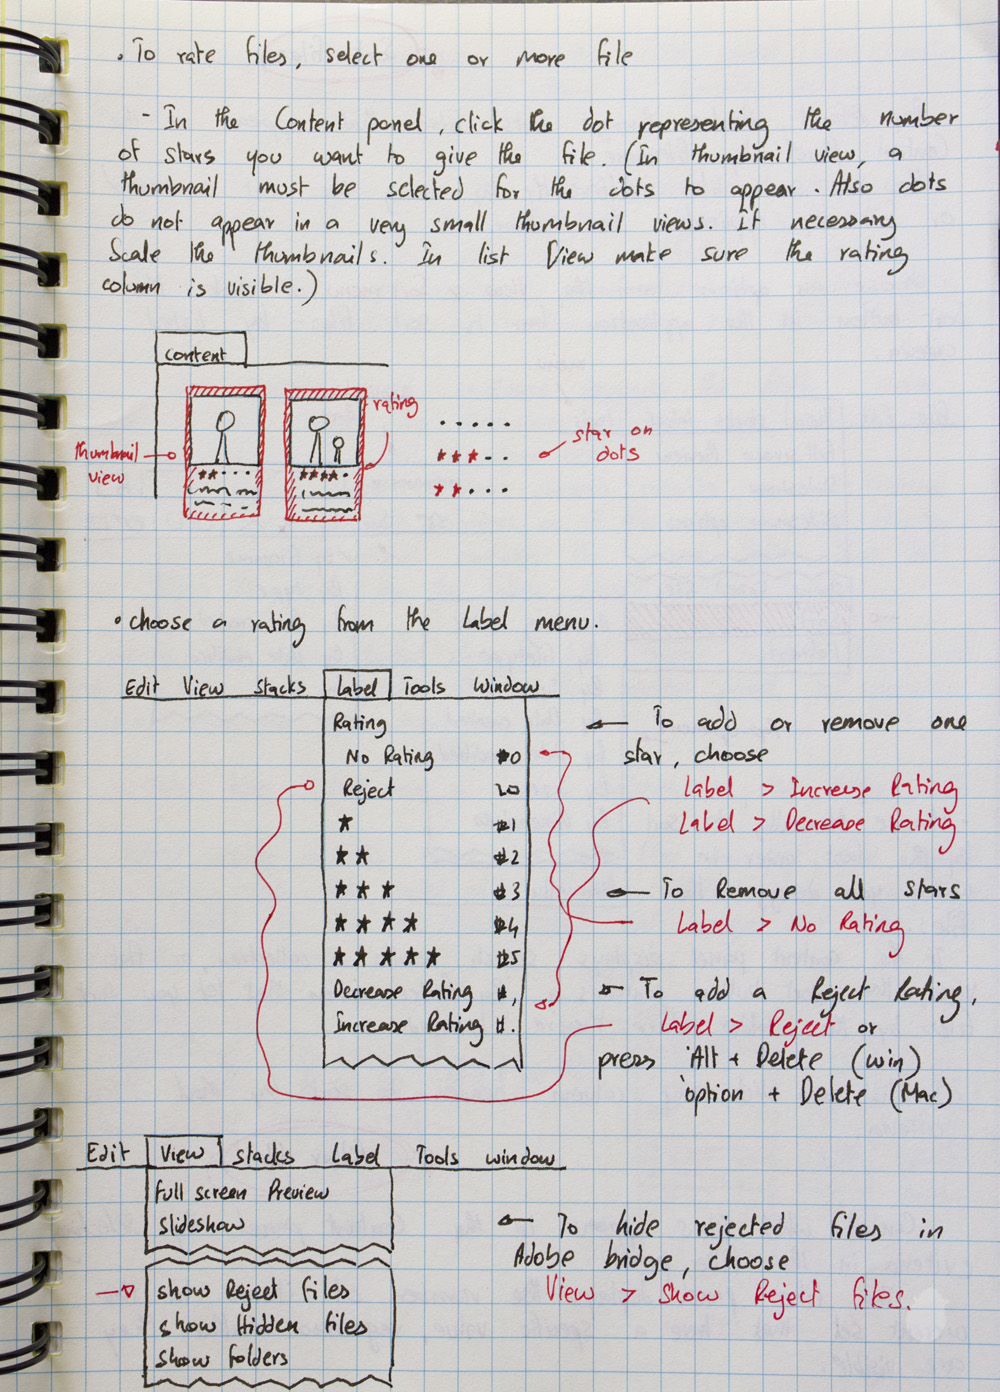 . To rate files, select one or more file
- In the Content panel, click the dot representing the number
of stars you want to give the file. (In thumbnail view, a
thumbnail must be selected for the dots to appear. Also dots
do not appear in a very small thumbnail views. If necessary
Scale the thumbnails. In list View make sure the rating
column is visible.)
Content
rating
thumbnail
view
star on
dots
• choose a rating from the Label menu.
Edit View Stacks Label Tools Window
Rating
No Rating 0
Reject
★ 1
★★ 2
★★★ 3
★★★★ 4
★★★★★ 5
Decrease Rating ,
Increase Rating .
← To add or remove one
star, choose
Label > Increase Rating
Label > Decrease Rating
← To Remove all stars
Label > No Rating
To add a Reject Rating,
Label > Reject or
press Alt + Delete (win)
option + Delete (Mac)
Edit View Stacks Label Tools window
Full screen Preview
slideshow
show Reject files
show Hidden files
show folders
← To hide rejected files in
Adobe bridge, choose
View > Show Reject files.